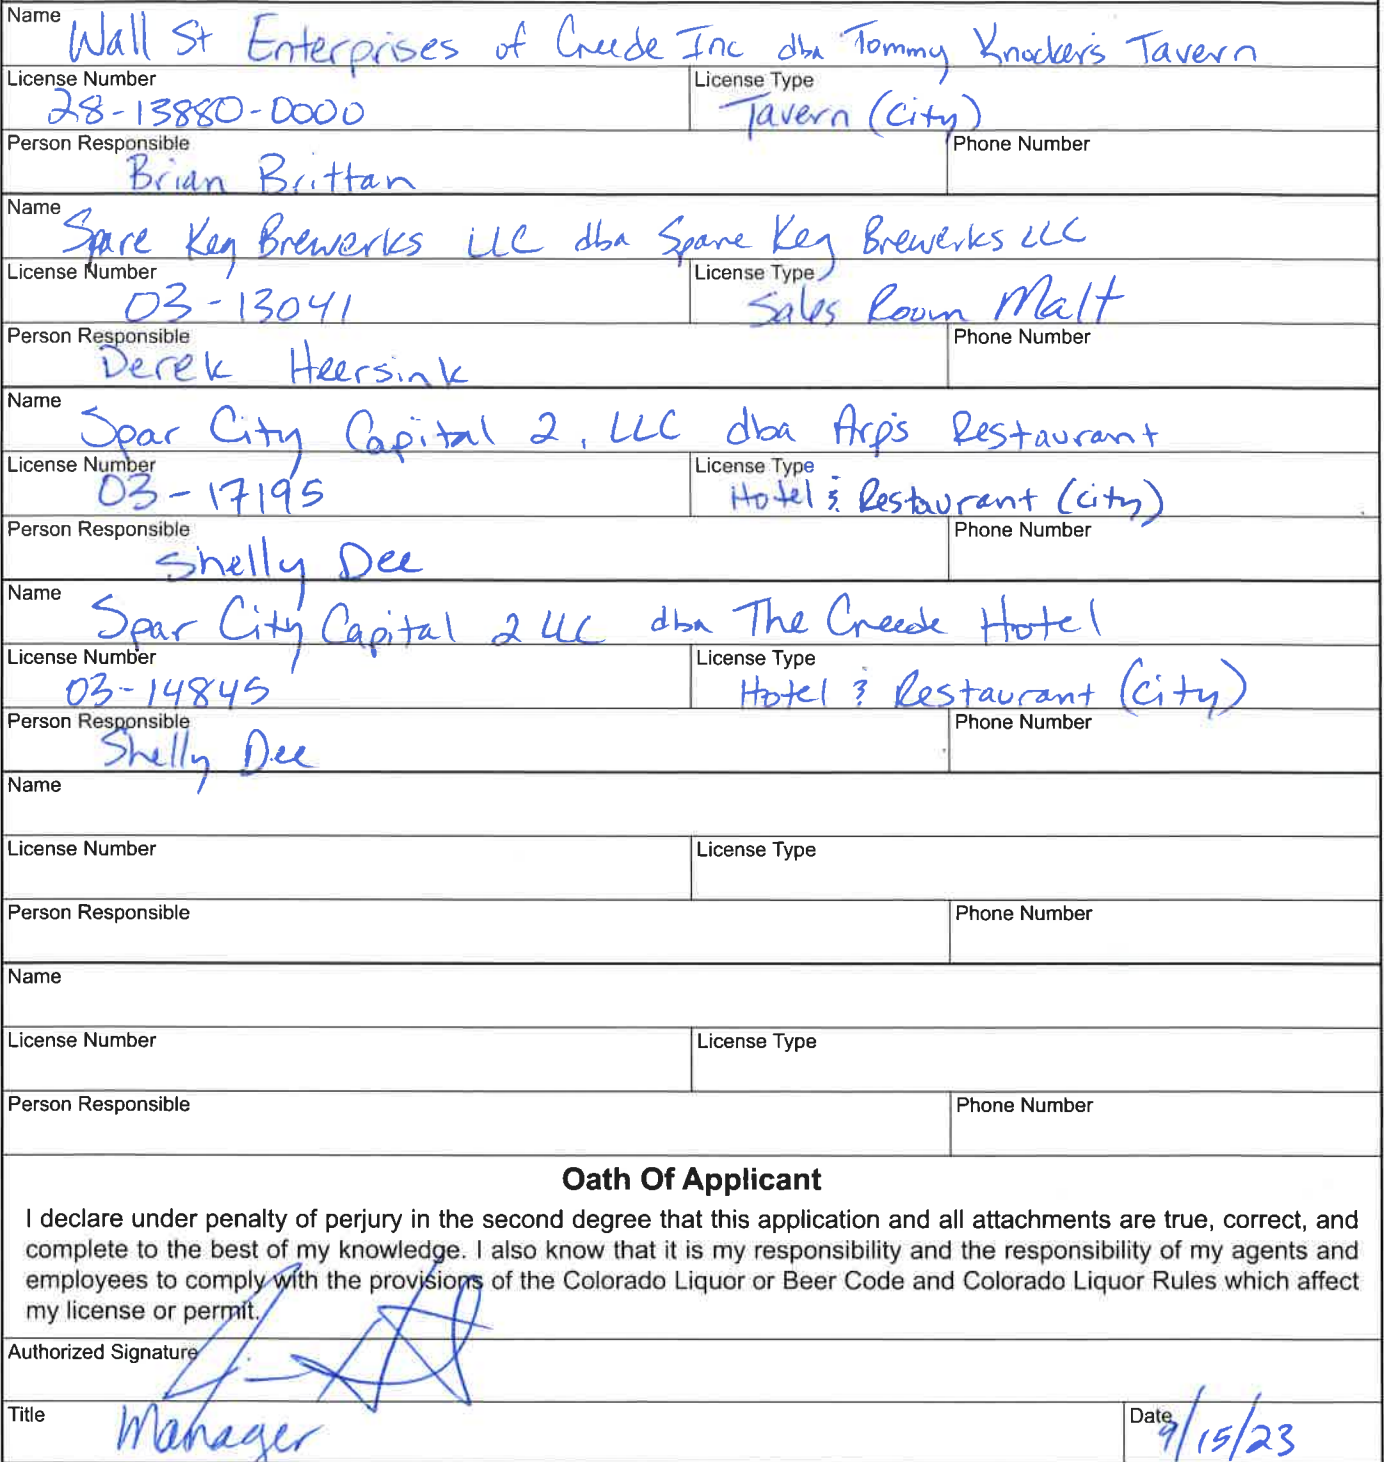 Name Wall St Enterprises of Creede Inc dba Tommy Knockers Tavern
License Number 28-13880-0000 License Type Tavern (City)
Person Responsible Brian Brittan Phone Number
Name Spare Keg Brewerks LLC dba Spare Keg Brewerks LLC
License Number 03-13041 License Type Sales Room Malt
Person Responsible Derek Heersink Phone Number
Name Spar City Capital 2, LLC dba Arp's Restaurant
License Number 03-17195 License Type Hotel & Restaurant (city)
Person Responsible Shelly Dee Phone Number
Name Spar City Capital 2 LLC dba The Creede Hotel
License Number 03-14845 License Type Hotel & Restaurant (City)
Person Responsible Shelly Dee Phone Number
Name
License Number License Type
Person Responsible Phone Number
Name
License Number License Type
Person Responsible Phone Number
Oath Of Applicant
I declare under penalty of perjury in the second degree that this application and all attachments are true, correct, and
complete to the best of my knowledge. I also know that it is my responsibility and the responsibility of my agents and
employees to comply with the provisions of the Colorado Liquor or Beer Code and Colorado Liquor Rules which affect
my license or permit.
Authorized Signature
Title Manager Date 9/15/23